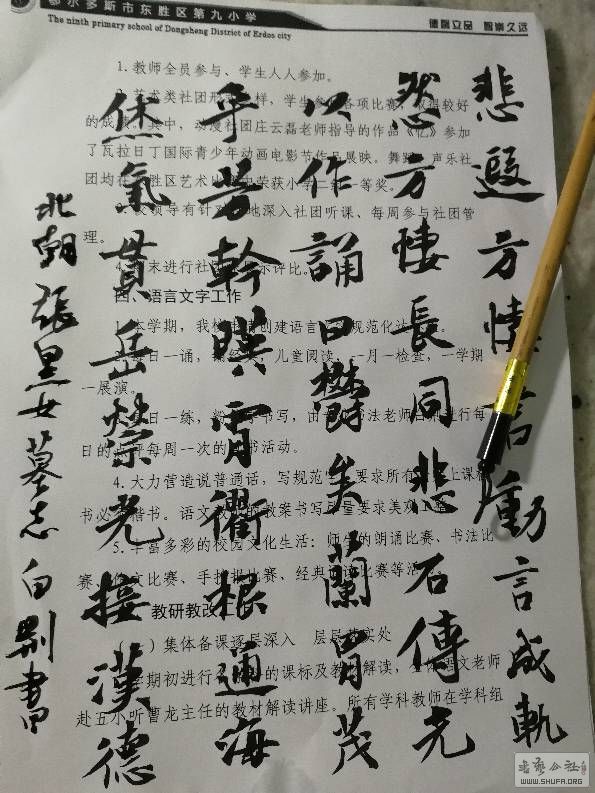 鄂尔多斯市东胜区第九小学
The ninth primary school of Dongsheng District of Erdos city
德馨立品 智崇久远
悲遐方悽言動言成軌
方悽長同悲石傳光
以作誦曰鬱矣蘭胄茂
乎芳幹暎霄衢根通海
烋氣貫岳榮光接漢德
北朝張黑女墓志 白荆書
1. 教师全员参与、学生人人参加。
艺术类社团形 样，学生参 各项比赛 取得较好
的成 其中，动漫社团庄云磊老师指导的作品《忆》参加
了瓦拉日丁国际青少年动画电影节作品展映。舞蹈 声乐社
团均在 胜区艺术 荣获小学 一等奖。
领导有针对 地深入社团听课、每周参与社团管
理。
4. 末进行社 示评比。
四、语言文字工作
本学期，我校 创建语言 规范化达
每日一诵， 儿童阅读，一月一检查，一学期
一展演。
每日一练， 书写，由 书法老师 进行每
日的点评每周一次的 书活动。
4. 大力营造说普通话，写规范 要求所有 上课
书必 楷书。语文 的教案书写质量要求美观
5. 丰富多彩的校园文化生活：师生的朗诵比赛、书法比
赛、作文比赛、手抄报比赛、经典 比赛等活
教研教改工
）集体备课逐层深入 层层 实处
学期初进行 的课标及教材解读， 语文老师
赴五小听曹龙主任的教材解读讲座。所有学科教师在学科组
书艺公社
WWW.SHUFA.ORG